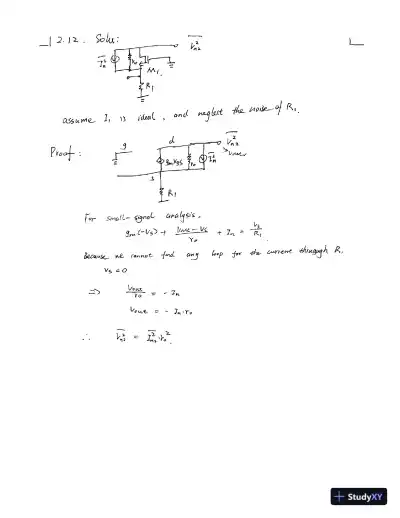 2.12. Solu:
V²n2
I²n
ro
M1
R1
assume I1 is ideal, and neglect the noise of R1.
Proof:
g
d
gmVgs
ro
I²n
V²n2
Vout
s
R1
For small-signal analysis,
gm(-Vs) + (Vout - Vs)/ro + In = Vs/R1.
Because we cannot find any loop for the current through R1
Vs = 0
⇒ Vout/ro = - In
Vout = - In·ro
∴ V²n2 = I²n2·ro².
StudyXY